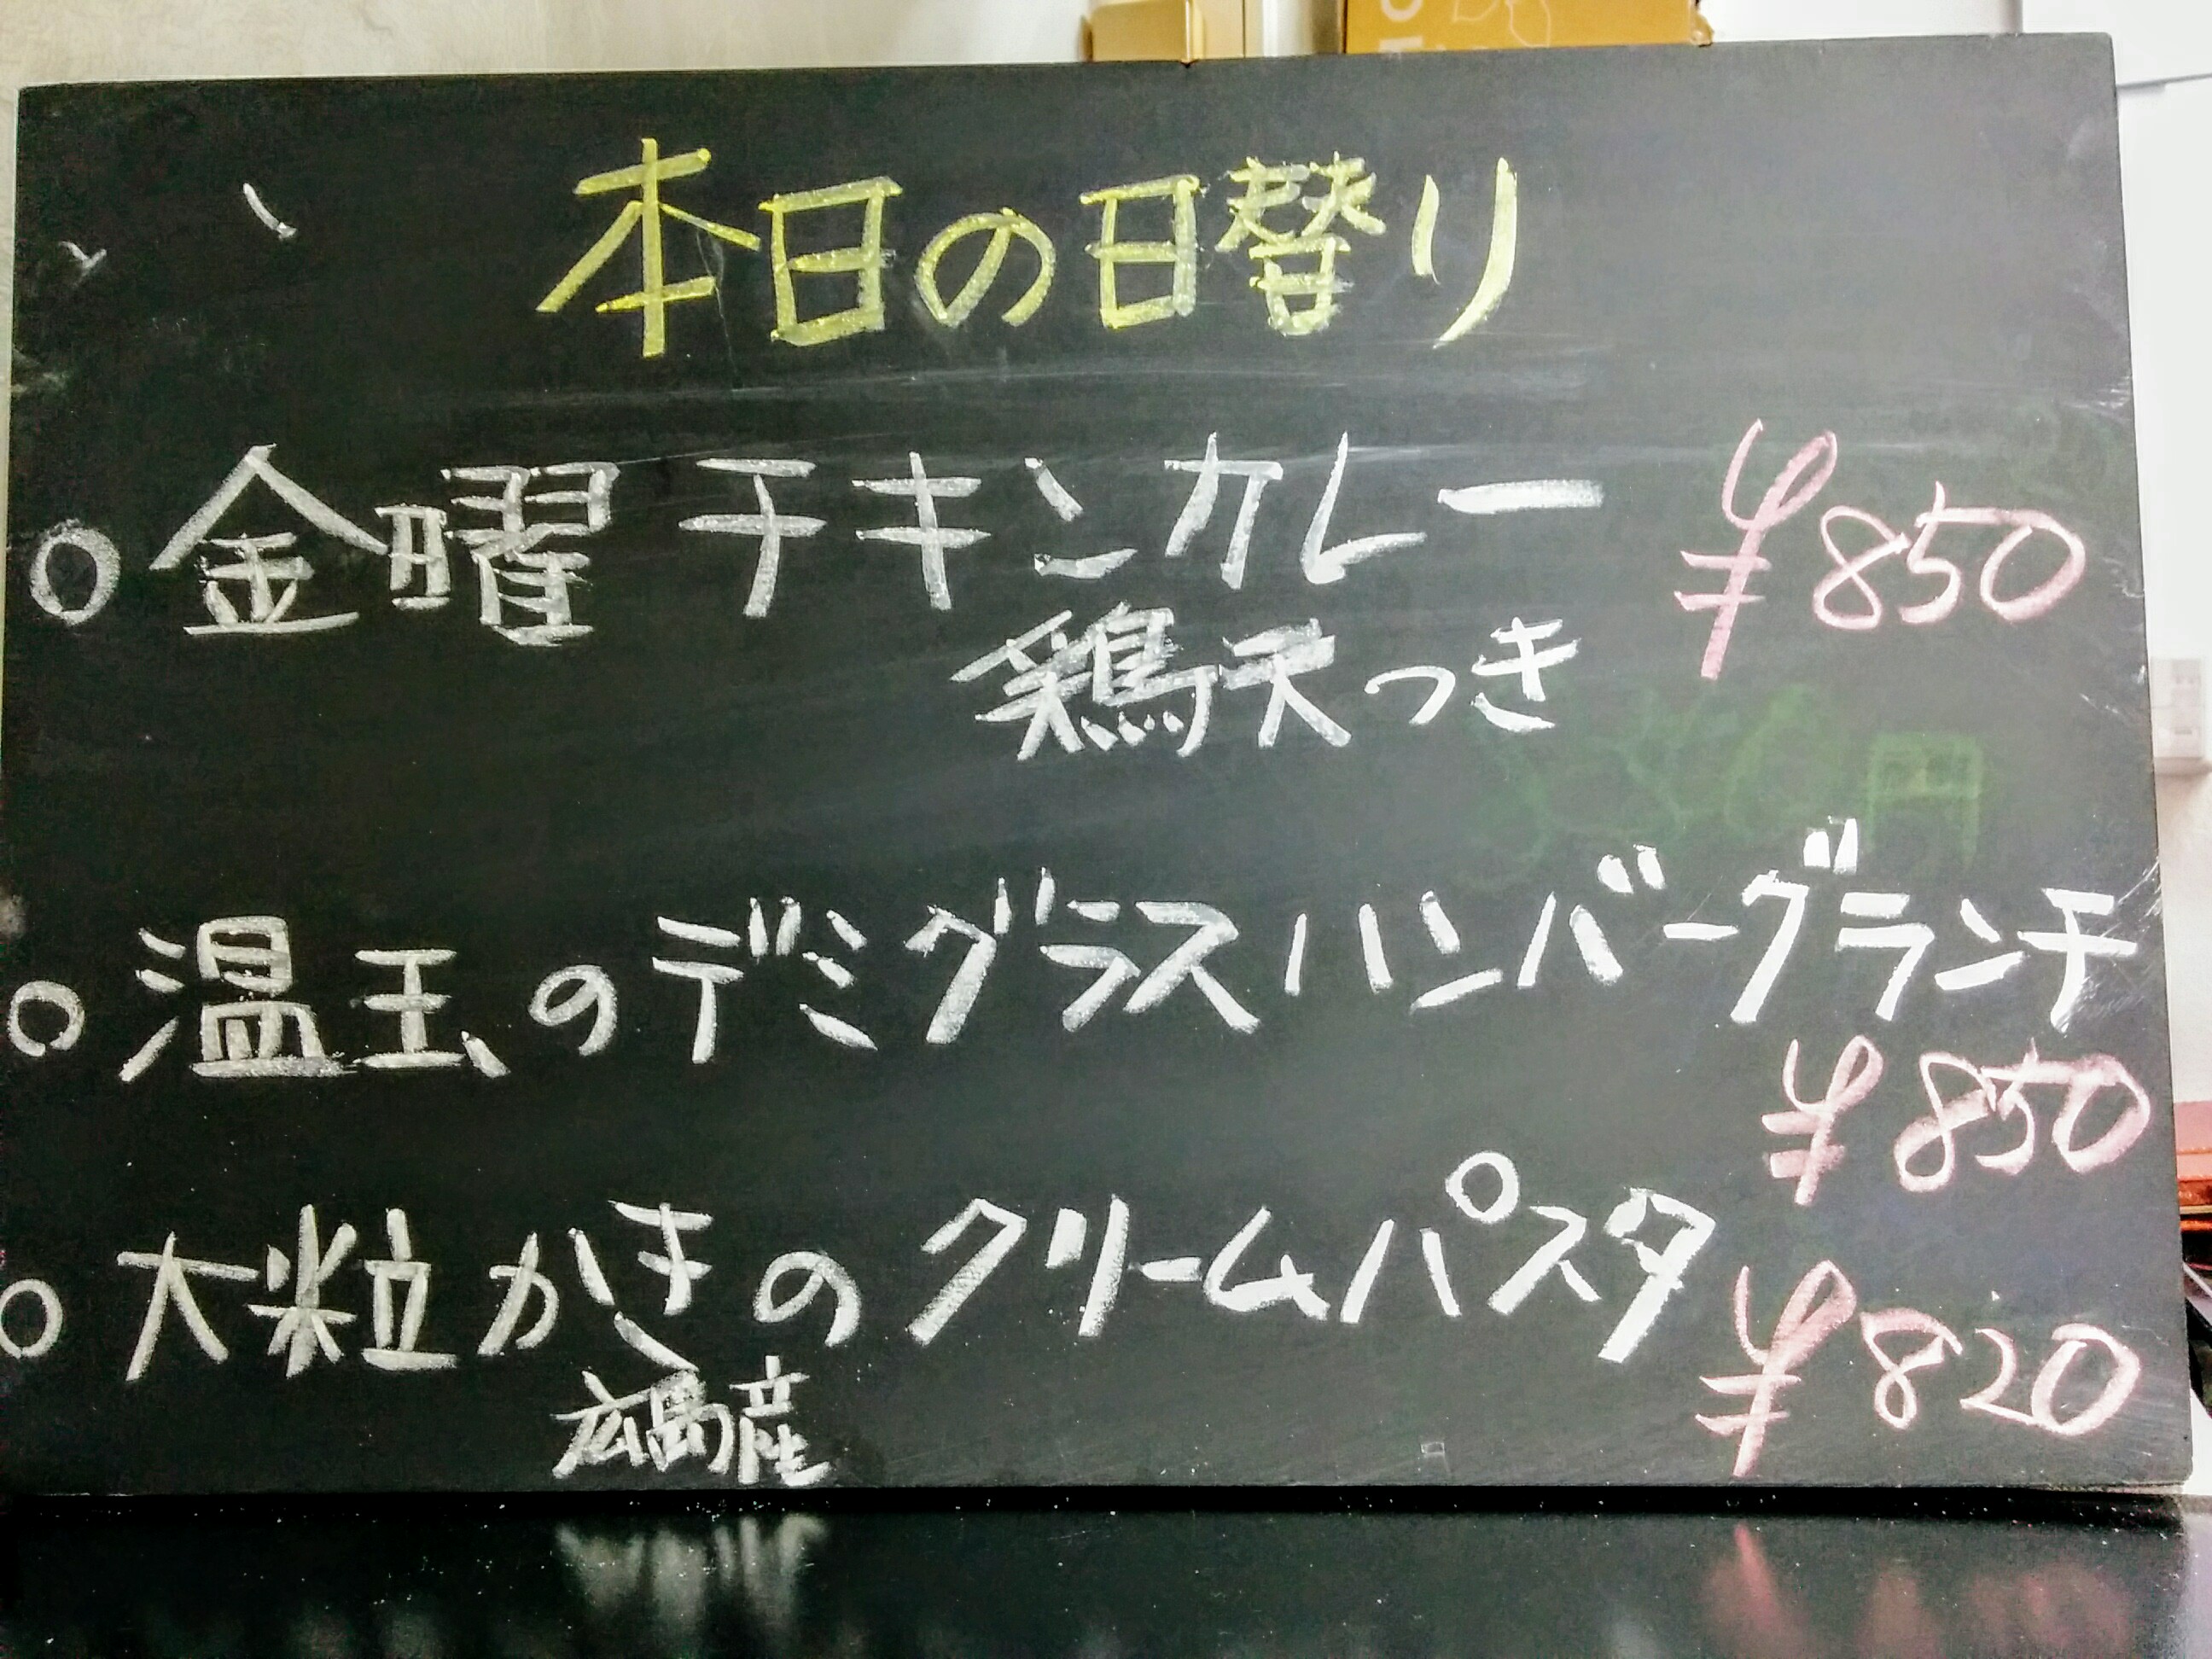 本日の日替り
○金曜 チキンカレー ¥850
鶏天つき
○温玉のデミグラスハンバーグランチ
¥850
○大粒かきのクリームパスタ ¥820
広島産